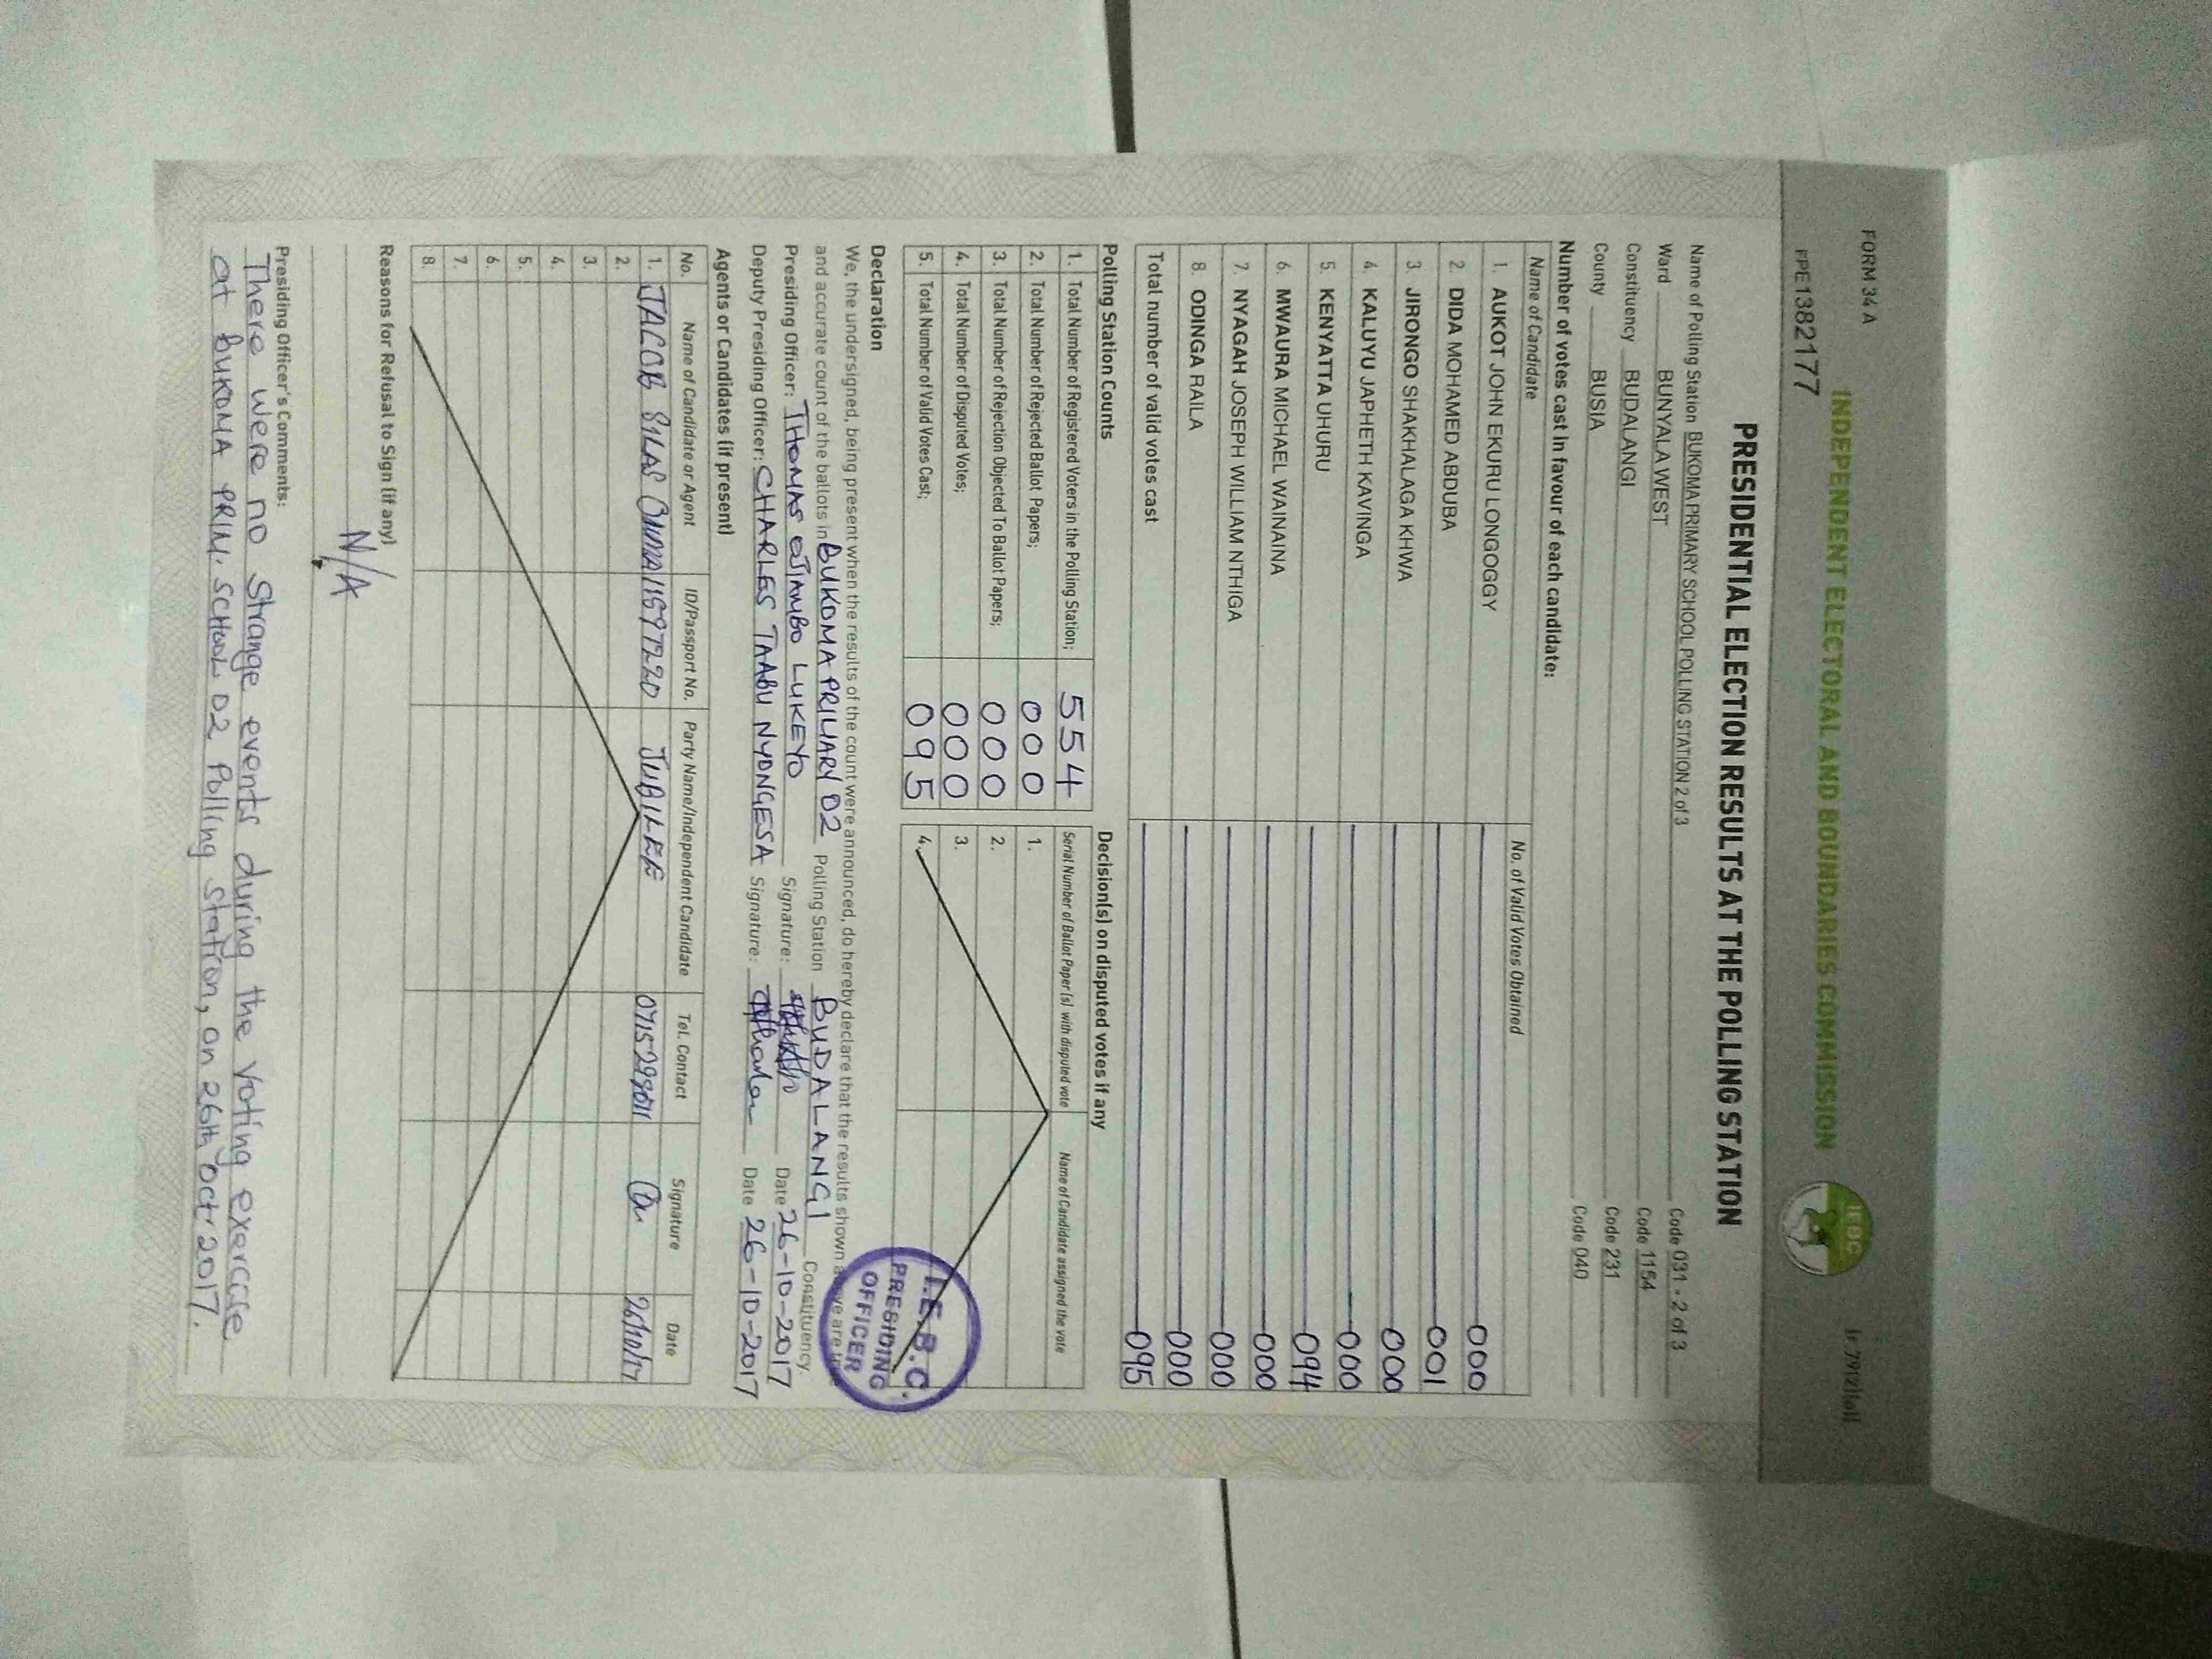 FORM 34 A
INDEPENDENT ELECTORAL AND BOUNDARIES COMMISSION
IEBC
PPE1382177
PRESIDENTIAL ELECTION RESULTS AT THE POLLING STATION
Name of Polling Station BUKOMA PRIMARY SCHOOL POLLING STATION 2 of 3 Code 031 - 2 of 3
Ward BUNYALA WEST Code 1154
Constituency BUDALANGI Code 231
County BUSIA Code 040
Number of votes cast in favour of each candidate:
Name of Candidate No. of Valid Votes Obtained
1. AUKOT JOHN EKURU LONGOGGY 000
2. DIDA MOHAMED ABDUBA 001
3. JIRONGO SHAKHALAGA KHWA 000
4. KALUYU JAPHETH KAVINGA 000
5. KENYATTA UHURU 094
6. MWAURA MICHAEL WAINAINA 000
7. NYAGAH JOSEPH WILLIAM NTHIGA 000
8. ODINGA RAILA 000
Total number of valid votes cast 095
Polling Station Counts
1. Total Number of Registered Voters in the Polling Station; 554
2. Total Number of Rejected Ballot Papers; 000
3. Total Number of Rejection Objected To Ballot Papers; 000
4. Total Number of Disputed Votes; 000
5. Total Number of Valid Votes Cast; 095
Decision(s) on disputed votes if any
Serial Number of Ballot Paper(s) with disputed vote Name of Candidate assigned the vote
1.
2.
3.
4.
I.E.B.C.
PRESIDING
OFFICER
Declaration
We, the undersigned, being present when the results of the count were announced, do hereby declare that the results shown above are true
and accurate count of the ballots in BUKOMA PRILIARY 02 Polling Station BUDALANGI Constituency.
Presiding Officer: THOMAS OJIAMBO LUKEYO Signature: Date 26-10-2017
Deputy Presiding Officer: CHARLES TAABU NYONGESA Signature: Date 26-10-2017
Agents or Candidates (if present)
No. Name of Candidate or Agent ID/Passport No. Party Name/Independent Candidate Tel. Contact Signature Date
1. JACOB SILAS OUMA 11597220 JUBILEE 26/10/17
2.
3.
4.
5.
6.
7.
8.
Reasons for Refusal to Sign (if any)
N/A
Presiding Officer's Comments:
There were no strange events during the voting exercise
at BUKOMA PRIM. SCHOOL 02 Polling Station, on 26th Oct 2017.